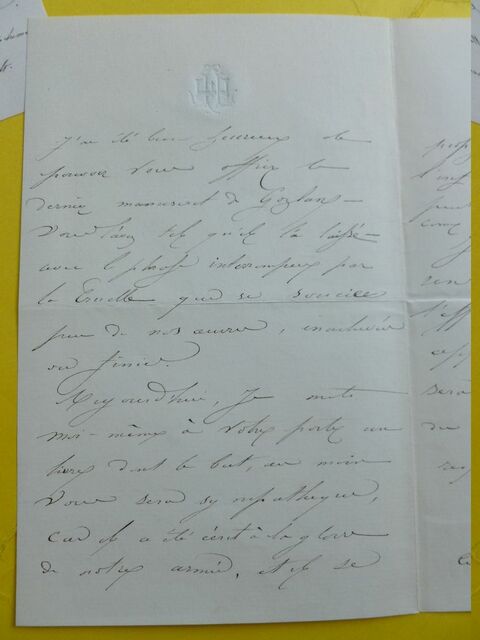 J'ai été bien heureux de
pouvoir vous offrir le
dernier manuscrit de Gozlan –
Vous l'avez tel qu'il l'a laissé –
avec la phrase interrompue par
la Cruelle que se soucie
peu de nos œuvres, inachevées
ou finies.
Aujourd'hui, je mets
moi-même à votre porte un
livre dont le but, au moins
vous sera sympathique,
car il a été écrit à la gloire
de notre armée, et il se
sera
du